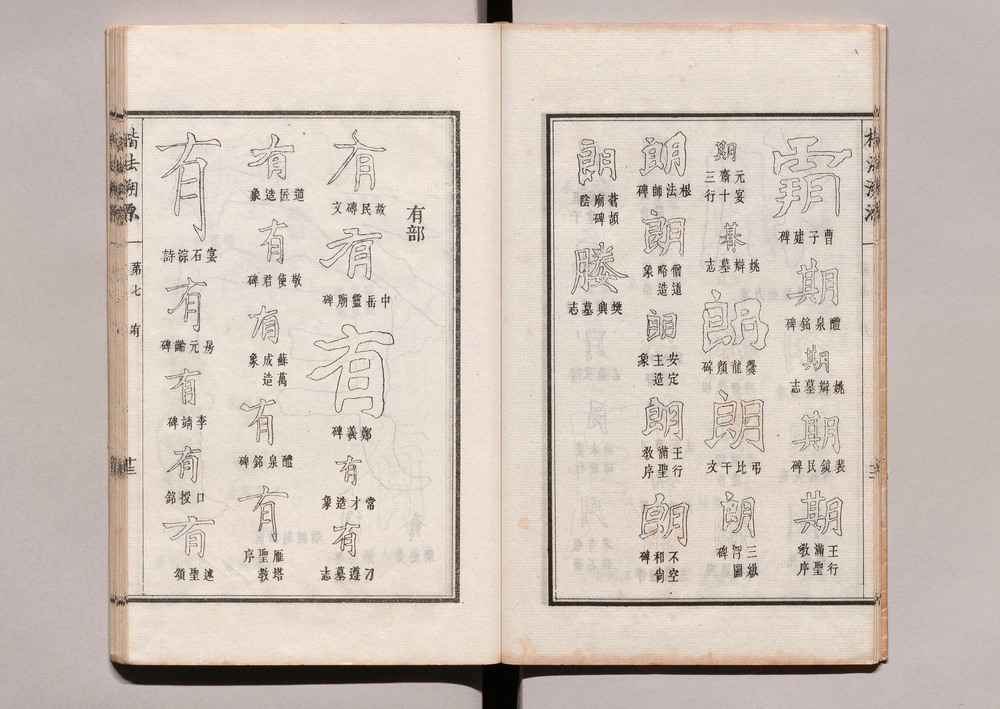 楷法溯源
霸
曹子建碑
期
醴泉銘碑
期
姚辯墓志
期
裴鏡民碑
期
王行滿聖教序
期
元宴齋三十行
朞
姚辯墓志
朗
爨龍顏碑
朗
弔比干文
朗
三級浮圖碑
朗
根法師碑
朗
僧道略造象
朗
安定王造象
朗
王行滿聖教序
朗
不空和尙碑
朗
蒼頡廟碑陰
樊興墓志
有部
有
故民磚文
有
中岳靈廟碑
有
鄭義碑
有
常才造象
有
刁遵墓志
有
道匠造象
有
敬使君碑
有
蘇萬成造象
有
醴泉銘碑
有
雁塔聖教序
有
宴石淙詩
有
房元齡碑
有
李靖碑
有
口授銘
有
述聖頌
楷法溯源
第七 有